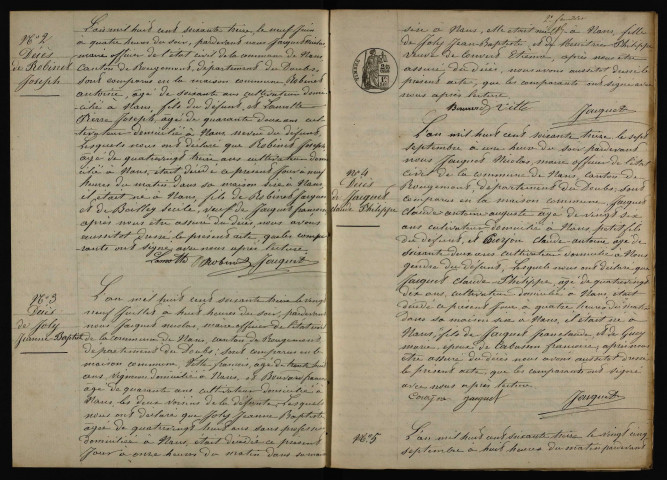 N° 2
Décès
de Robinet
Joseph
L'an mil huit cent soixante treize le neuf juin
à quatre heures du soir, pardevant nous Jacquet Nicolas,
maire officier de l'état civil de la commune de Nans
Canton de Rougemont, département du Doubs,
sont comparus en la maison commune Robinet
âgé de soixante ans cultivateur domi
cilié à Nans, fils du défunt, et Lamotte
Pierre Joseph, âgé de quarante deux ans cul
tivateur domicilié à Nans neveu du défunt,
lesquels nous ont déclaré que Robinet Joseph
âgé de quatrevingt treize ans cultivateur domi
cilié à Nans, était décédé ce présent jour à neuf
heures du matin dans sa maison sise à Nans
il était né à Nans, fils de Robinet Jacques
et de veuf de Jacquet françoise
après nous être assuré du décès nous avons
aussitôt dressé le présent acte que les compa
rants ont signé avec nous après lecture.
Lamotte Robinet Jacquet
N° 3
Décès
de Joly
Jeanne Baptiste
L'an mil huit cent soixante treize le vingt
neuf Juillet à huit heures du soir, pardevant
nous Jacquet nicolas, maire officier de l'état civil
de la commune de Nans, canton de Rougemont
département du Doubs, sont comparus en la
maison commune Vette francois, âgé de trente huit
ans, vigneron domicilié à Nans, et
âgé de quarante ans cultivateur domicilié à
Nans les deux voisins de la défunte, lesquels
nous ont déclaré que Joly Jeanne Baptiste
âgée de quatrevingt huit ans sans profession
domiciliée à Nans, était décédée ce présent
Jour à onze heures du matin dans sa maison
sise à Nans, elle était née à Nans, fille
de Joly Jean Baptiste, et de Philippe
veuve de Etienne, après nous être
assuré du décès, nous avons aussitôt dressé le
présent acte, que les comparants ont signé avec
nous après lecture
Vette Jacquet
N° 4
Décès
de Jacquet
Claude Philippe
L'an mil huit cent soixante treize le sept
septembre à une heure du soir pardevant
nous Jacquet Nicolas, maire officier de l'état
civil de la commune de Nans, canton de
Rougemont, département du Doubs, sont
comparus en la maison commune Jacquet
Claude antoine auguste âgé de vingt six
ans cultivateur domicilié à Nans petit fils
du défunt, et Claude antoine, âgé de
soixante deux ans cultivateur domicilié à Nans
gendre du défunt, lesquels nous ont déclaré que
Jacquet Claude Philippe, âgé de quatrevingt
dix ans, cultivateur domicilié à Nans, était
décédé ce présent Jour à quatre heures du matin
Dans sa maison sise à Nans il était né à
Nans, fils de Jacquet françois et de
marie, époux de francoise, après nous
être assuré du décès nous avons aussitôt dressé
le présent acte, que les comparants ont signé
avec nous après lecture
Jacquet Jacquet
N° 5
L'an mil huit cent soixante treize le vingt cinq
septembre à huit heures du matin pardevant